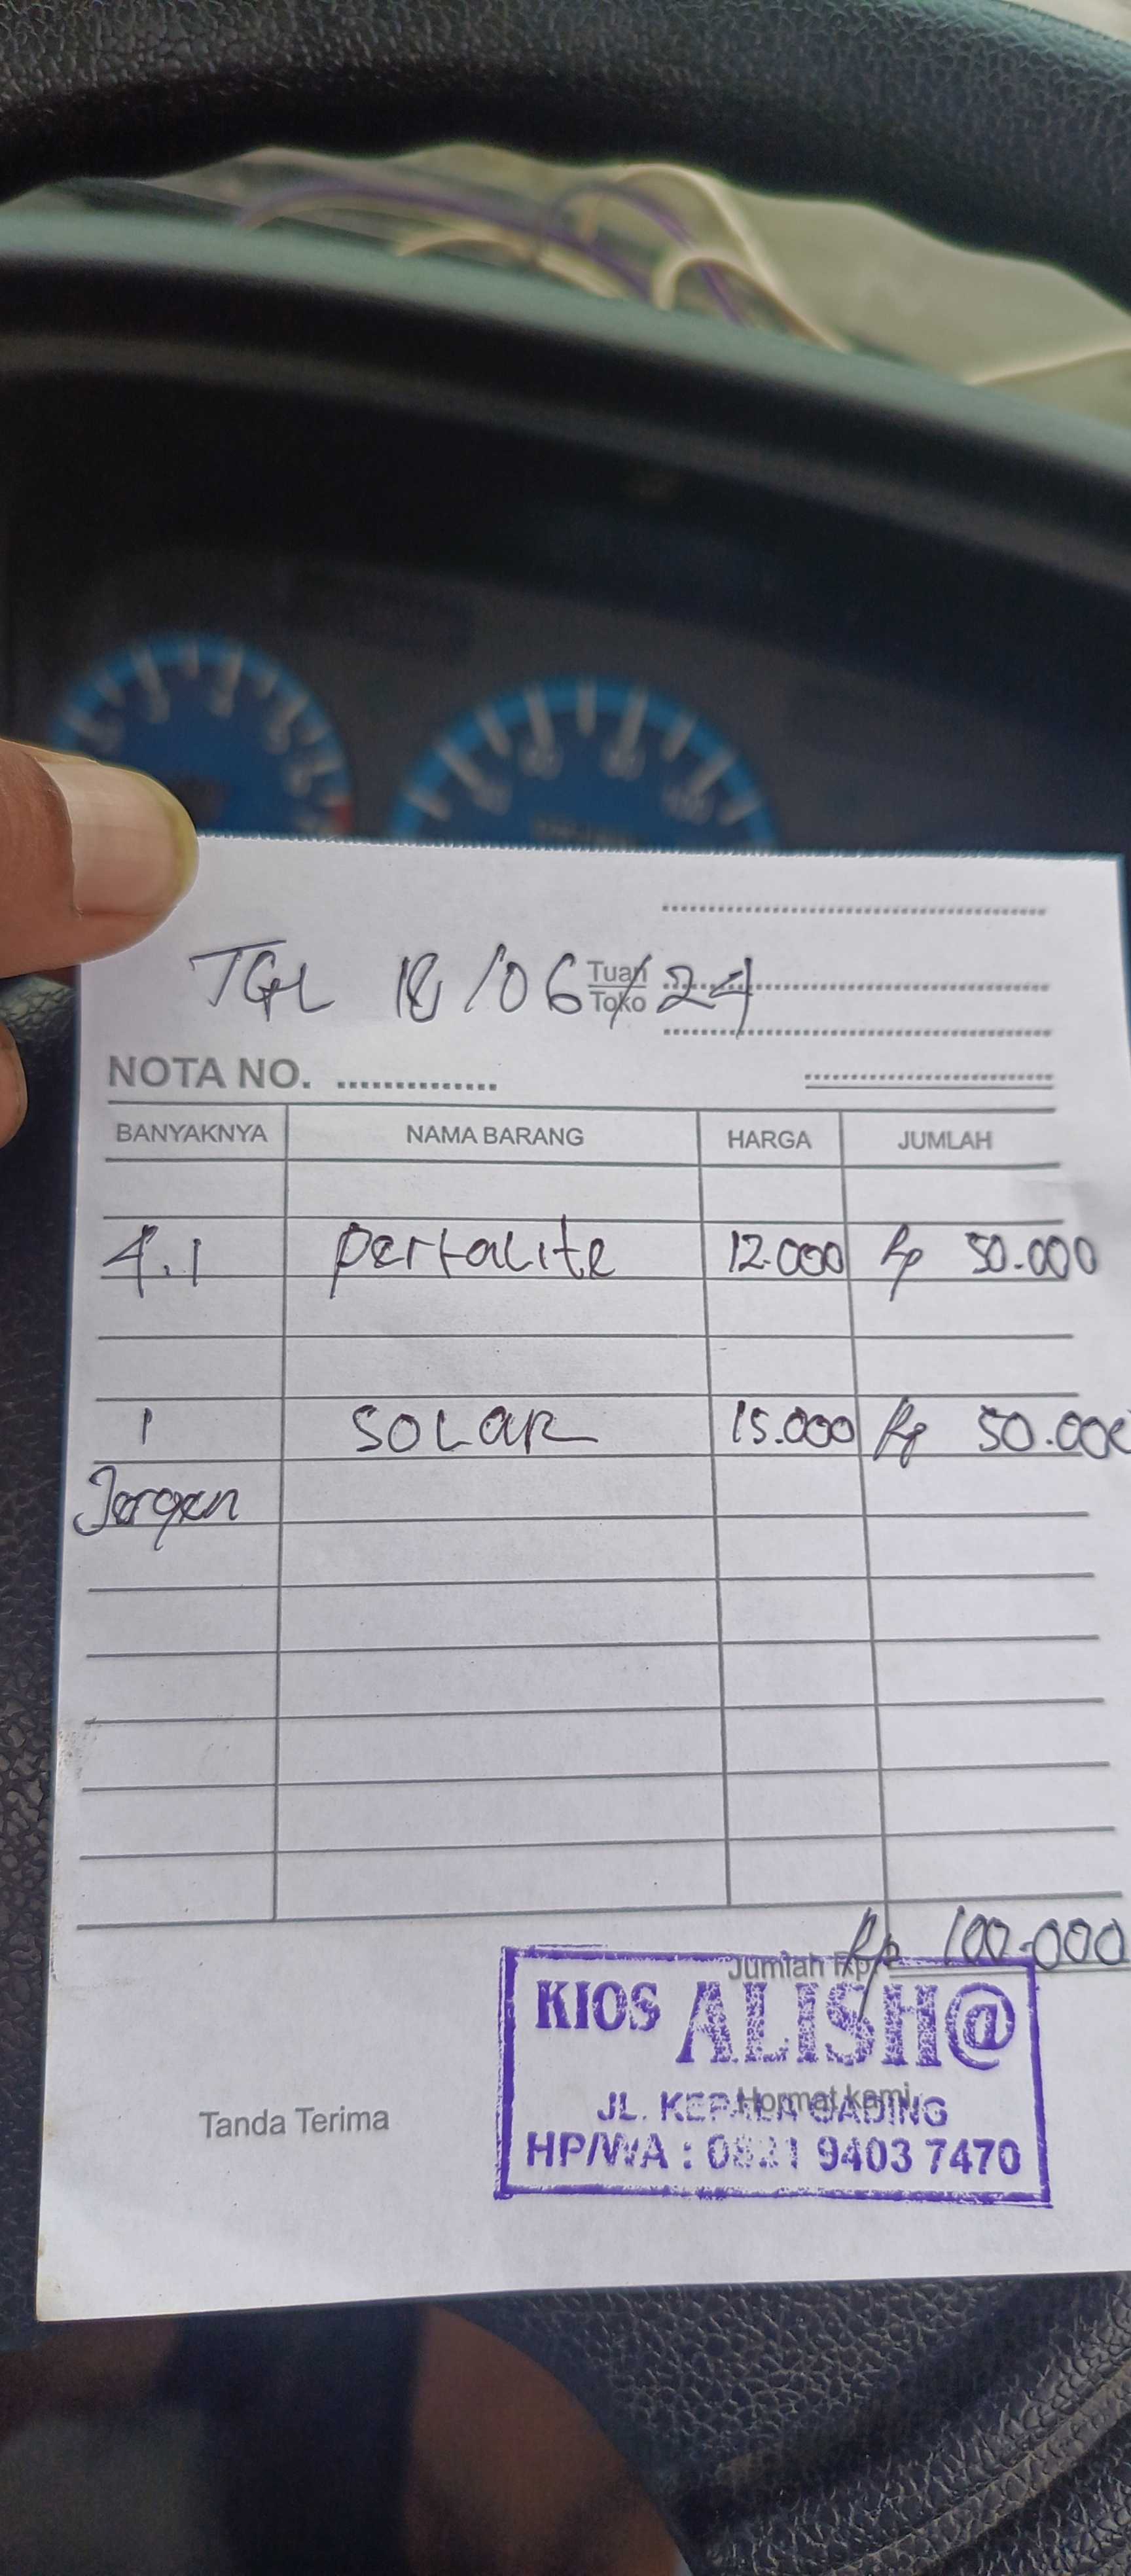 TGL 18/06/24
Tuan
Toko
NOTA NO. ...............
BANYAKNYA NAMA BARANG HARGA JUMLAH
4.1 Pertalite 12.000 Rp 50.000
1 SOLAR 15.000 Rp 50.000
Jergen
Jumlah Rp Rp 100.000
KIOS ALISH@
Tanda Terima Hormat kami,
JL. KEPALA GADING
HP/WA : 0821 9403 7470